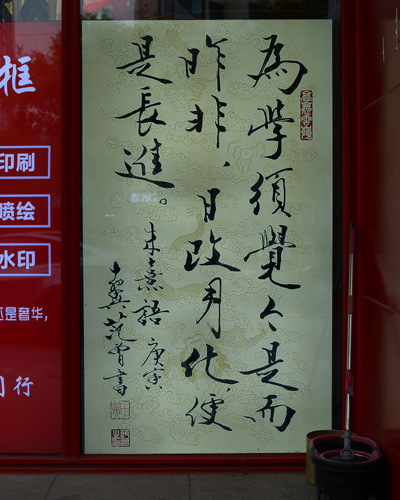 為學須覺今是而
昨非，日改月化，便
是長進。
朱熹語 庚寅
十翼范曾書
框
印刷
喷绘
水印
是奢华，
行